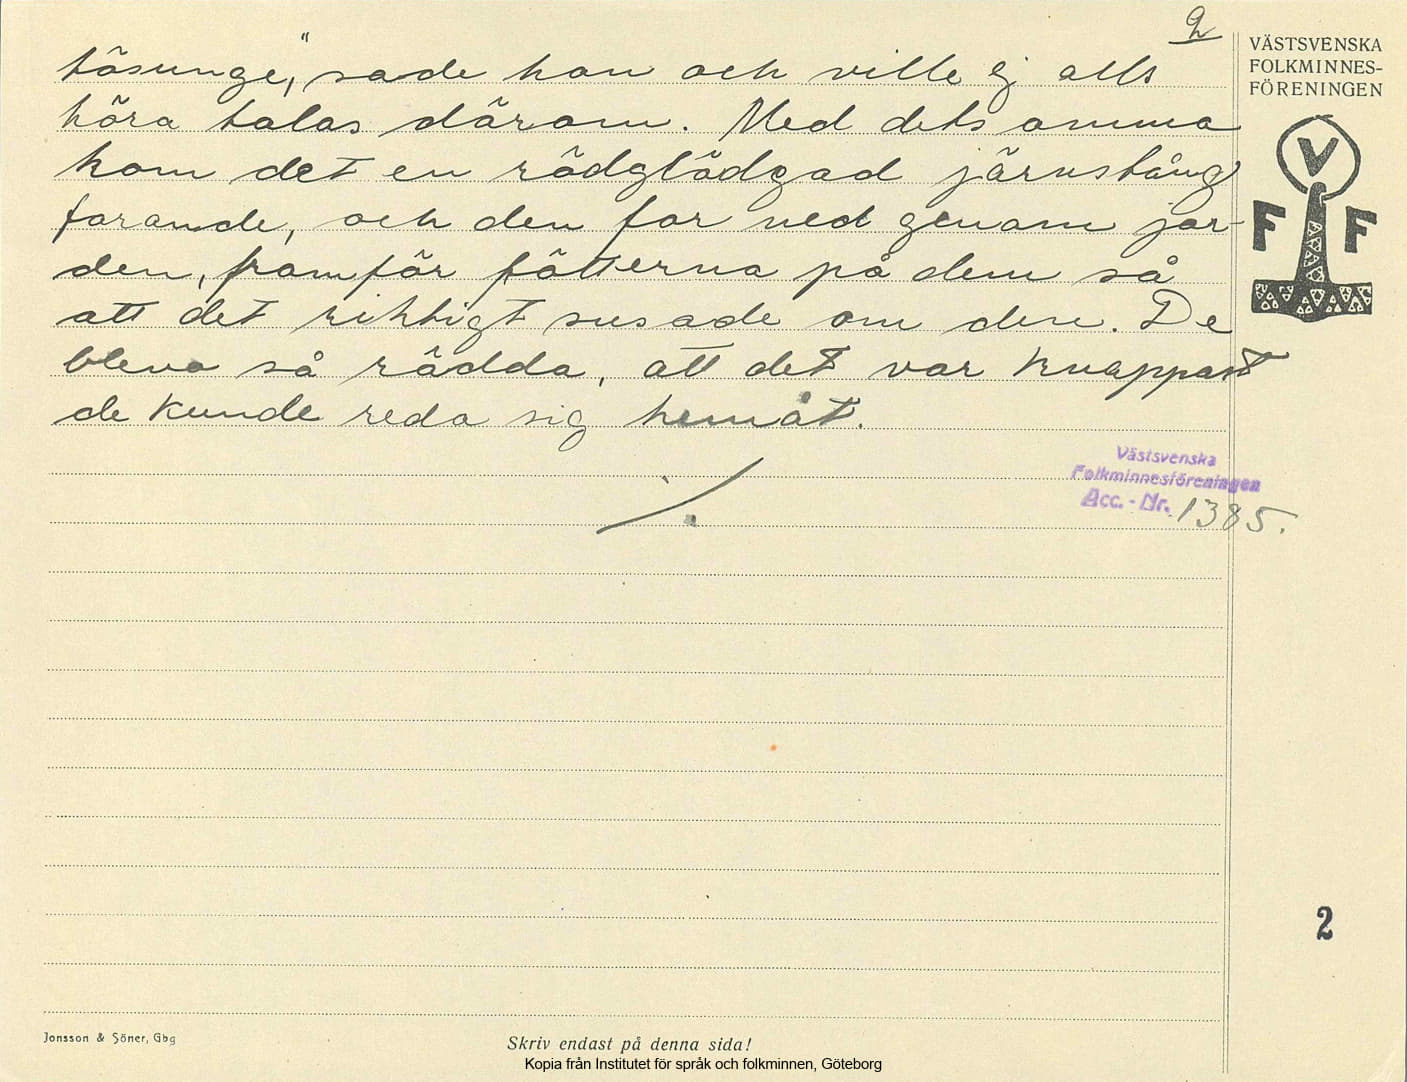 2
tösunge," sade han och ville ej alls
höra talas därom. Med detsamma
kom det en rödglödgad järnstång
farande, och den for ned genom jor-
den, framför fötterna på dem så
att det riktigt susade om den. De
bleva så rädda, att det var knappast
de kunde reda sig hemåt.
VÄSTSVENSKA
FOLKMINNES-
FÖRENINGEN
V
F F
Västsvenska
Folkminnesföreningen
Acc. - Nr. 1385.
2
Jonsson & Söner, Gbg
Skriv endast på denna sida!
Kopia från Institutet för språk och folkminnen, Göteborg